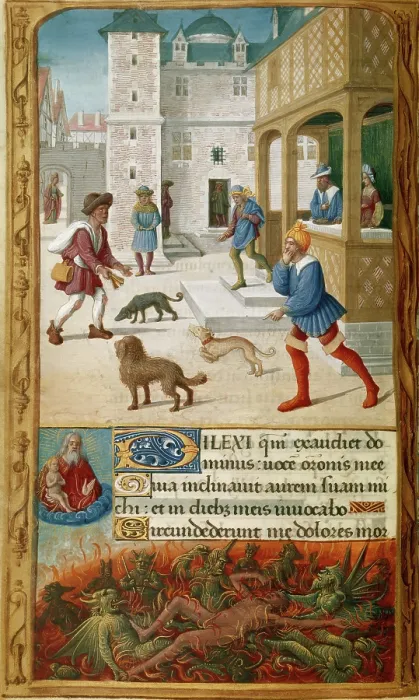 DILEXI qm̄ exaudiet do
minus: uocē orōnis mee
Quia inclinauit aurem suam mi
chi: et in diebꝫ meis inuocabo
Circundederunt me dolores mor